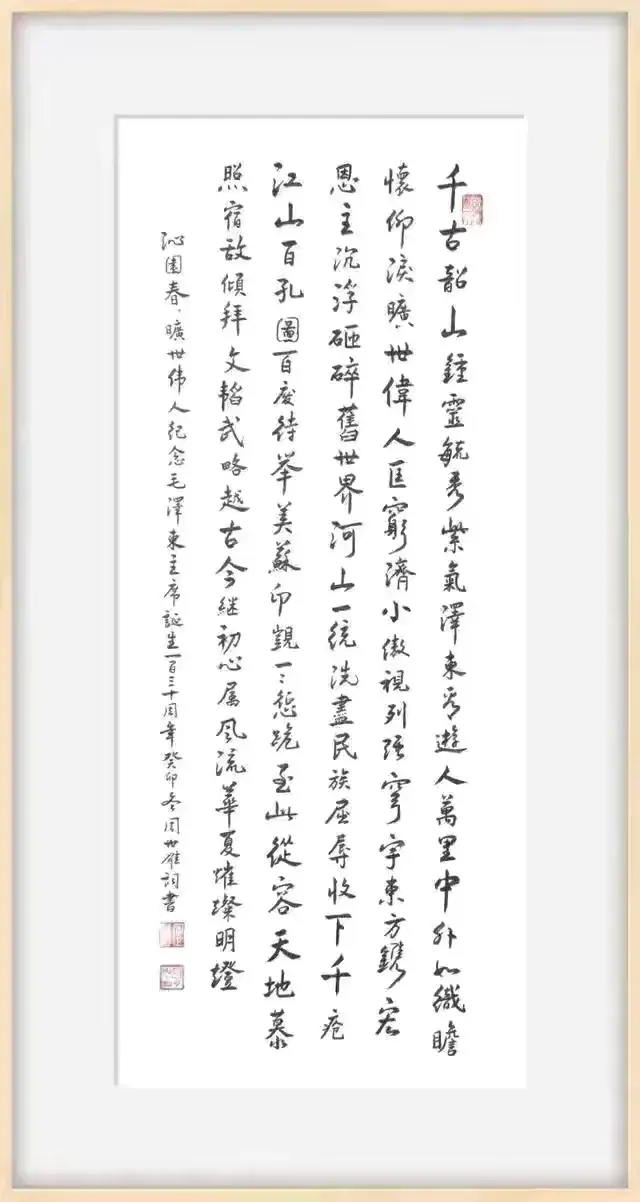 千古韶山鍾靈毓秀紫氣澤東看遊人萬里中外如織瞻
懷仰淚曠世偉人匡窮濟小傲視列強穹宇東方鐫宏
恩主沉浮砸碎舊世界河山一統洗盡民族屈辱收下千瘡
江山百孔圖百废待举美蘇印觀一一惩跪至此從容天地慕
照宿敌傾拜文韬武略越古今继初心属风流華夏熣璨明燈
沁園春·曠世伟人纪念毛澤東主席誕生一百三十周年癸卯冬周世雄詞書